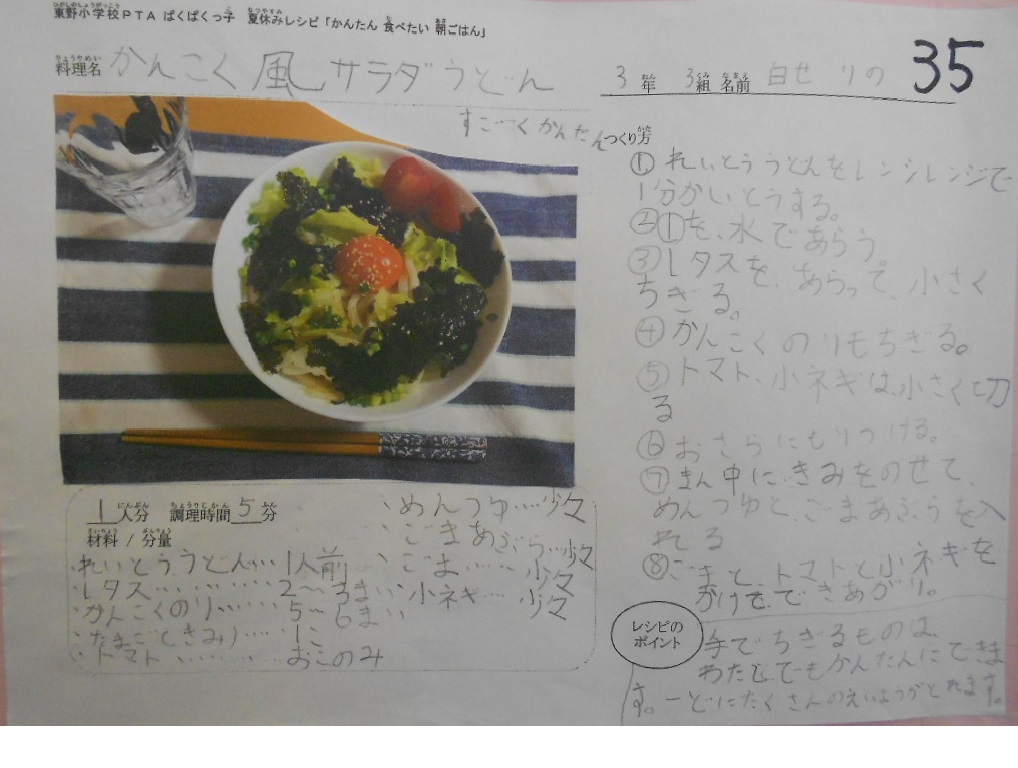 東野小学校PTA ぱくぱくっ子 夏休みレシピ「かんたん 食べたい 朝ごはん」
料理名 かんこく風サラダうどん
3年 3組 名前 白せ りの 35
すご~くかんたん つくり方
① れいとううどんをレンジレンジで
1分かいとうする。
②①を、水であらう。
③レタスを、あらって、小さく
ちぎる。
④かんこくのりもちぎる。
⑤トマト、小ネギは、小さく切
る
⑥おさらにもりつける。
⑦まん中にきみをのせて、
めんつゆと、ごまあぶらを入
れる
⑧ごまと、トマトと小ネギを
かけて、できあがり。
1人分 調理時間5分
材料/分量
れいとううどん…1人前
レタス………2~3まい
かんこくのり……5~6まい
たまご(きみ)…1こ
トマト………おこのみ
めんつゆ…少々
ごまあぶら…少々
ごま…少々
小ネギ…少々
レシピの
ポイント
手でちぎるものは、
わたしでもかんたんにできま
す。一どにたくさんのえいようがとれます。